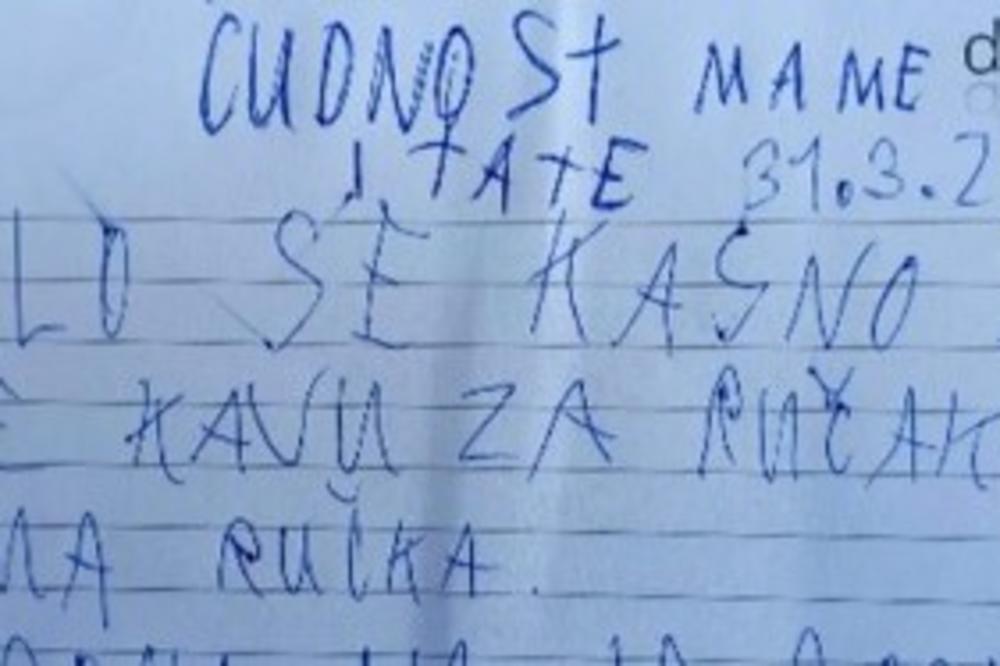 CUDNOST MAME
I TATE 31.3.2
LO SE KASNO
KAVU ZA RUČAK
RUČKA.